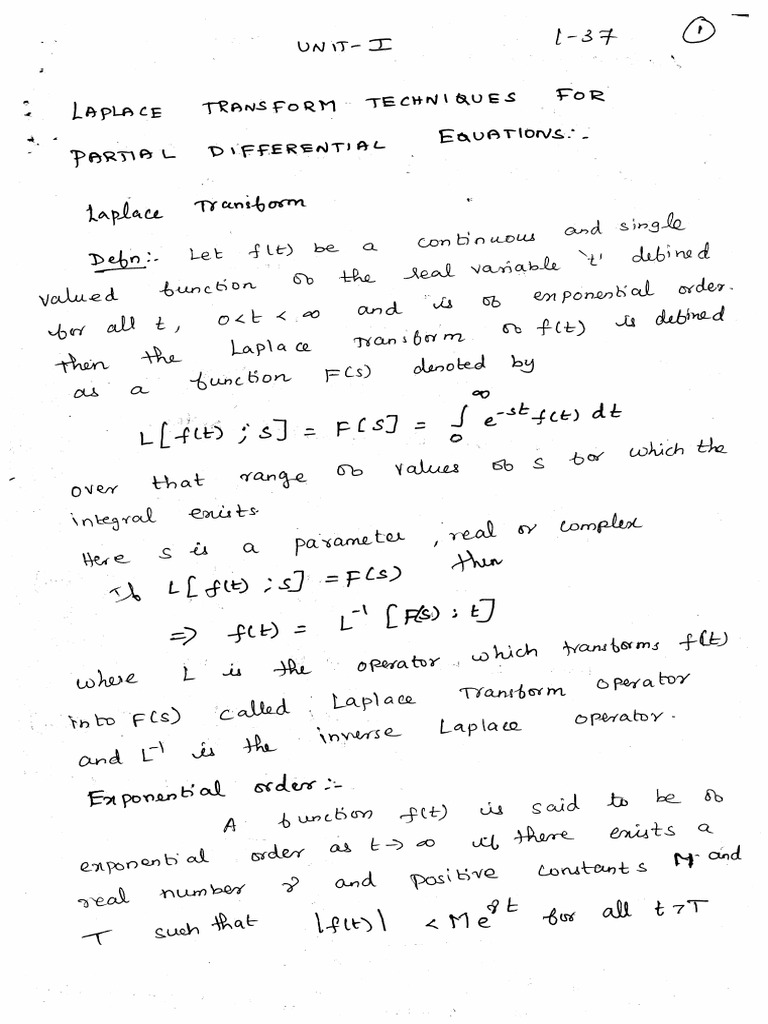 UNIT-I
1-37
①
LAPLACE TRANSFORM TECHNIQUES FOR
PARTIAL DIFFERENTIAL EQUATIONS:-
Laplace Transform
Defn:- Let f(t) be a continuous and single
valued function of the real variable 't' defined
for all t, 0<t<∞ and is of exponential order.
then the Laplace Transform of f(t) is defined
as a function F(s) denoted by
L[f(t) ; s] = F[s] = ∫₀^∞ e^-st f(t) dt
over that range of values of s for which the
integral exists.
Here s is a parameter, real or complex
If L[f(t) ; s] = F(s) then
⇒ f(t) = L⁻¹ [F(s) ; t]
where L is the operator which transforms f(t)
into F(s) called Laplace Transform operator
and L⁻¹ is the inverse Laplace operator.
Exponential order:-
A function f(t) is said to be of
exponential order as t→∞ if there exists a
real number γ and positive constants M and
T such that |f(t)| < Me^γt for all t>T